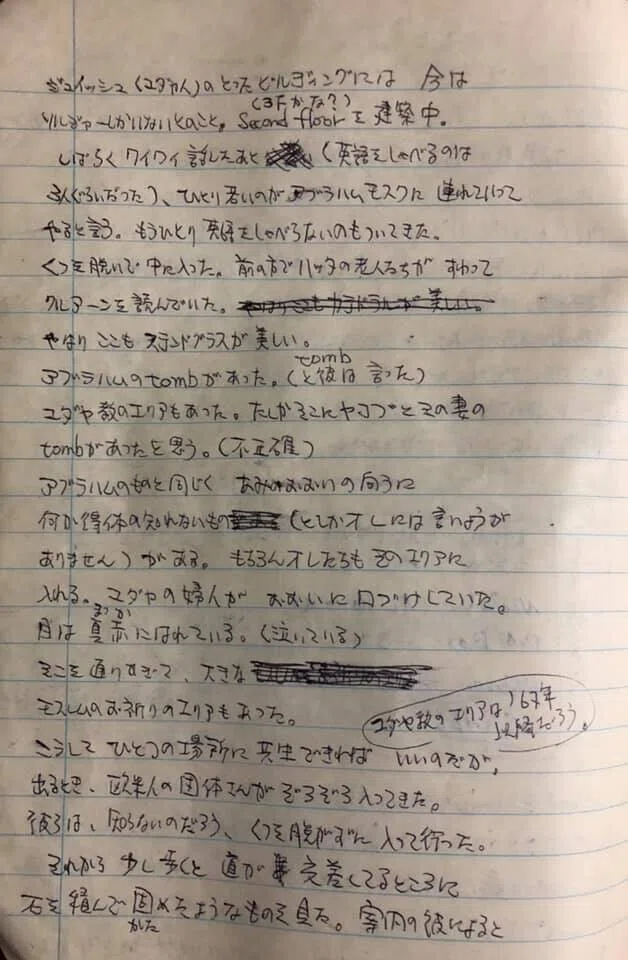 ジュイッシュ(ユダヤ人)のとったビルディングには 今は
ソルジャーしかいないとのこと。second floorを建築中。
(3Fかな?)
しばらくワイワイ話したあと (英語をしゃべるのは
2人ぐらいだった)、ひとり若いのがアブラハムモスクに 連れていって
やると言う。もうひとり英語をしゃべらないのもついてきた。
くつを脱いで中に入った。前の方でハッタの老人たちが すわって
クルアーンを読んでいた。
やはりここも ステンドグラスが美しい。
アブラハムのtombがあった。(と彼は言った)
tomb
ユダヤ教のエリアもあった。たしかそこにヤコブとその妻の
tombがあったと思う。(不正確)
アブラハムのものと同じく あみのおおいの向うに
何か得体の知れないもの (としかオレには言いようが
ありません)がある。もちろんオレたちもそのエリアに
入れる。ユダヤの婦人が おおいに口づけしていた。
目は真赤にはれている。(泣いている)
まっか
そこを通りすぎて、大きな
モスレムのお祈りのエリアもあった。
ユダヤ教のエリアは、'67年
以降だろう。
こうして ひとつの場所に 共生できれば いいのだが、
出るとき、欧米人の団体さんが ぞろぞろ入ってきた。
彼らは、知らないのだろう、くつを脱がずに 入って行った。
それから 少し歩くと 道が 交差してるところに
石を積んで 固めたようなものを見る。案内の彼によると
かた